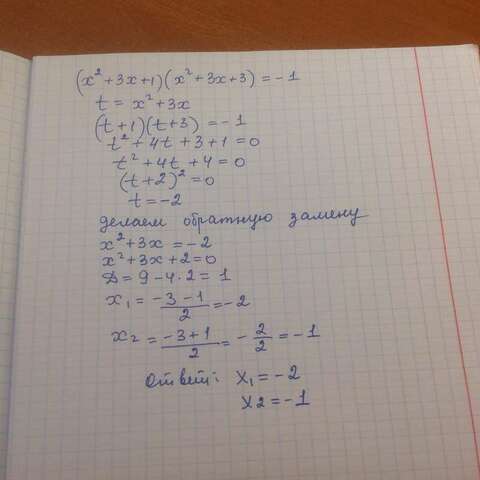 (x²+3x+1)(x²+3x+3)=-1
t = x²+3x
(t+1)(t+3) = -1
t²+4t+3+1=0
t²+4t+4=0
(t+2)²=0
t=-2
делаем обратную замену
x²+3x=-2
x²+3x+2=0
D=9-4·2=1
x₁=(-3-1)/2=-2
x₂=(-3+1)/2=-2/2=-1
Ответ: x₁=-2
x2=-1